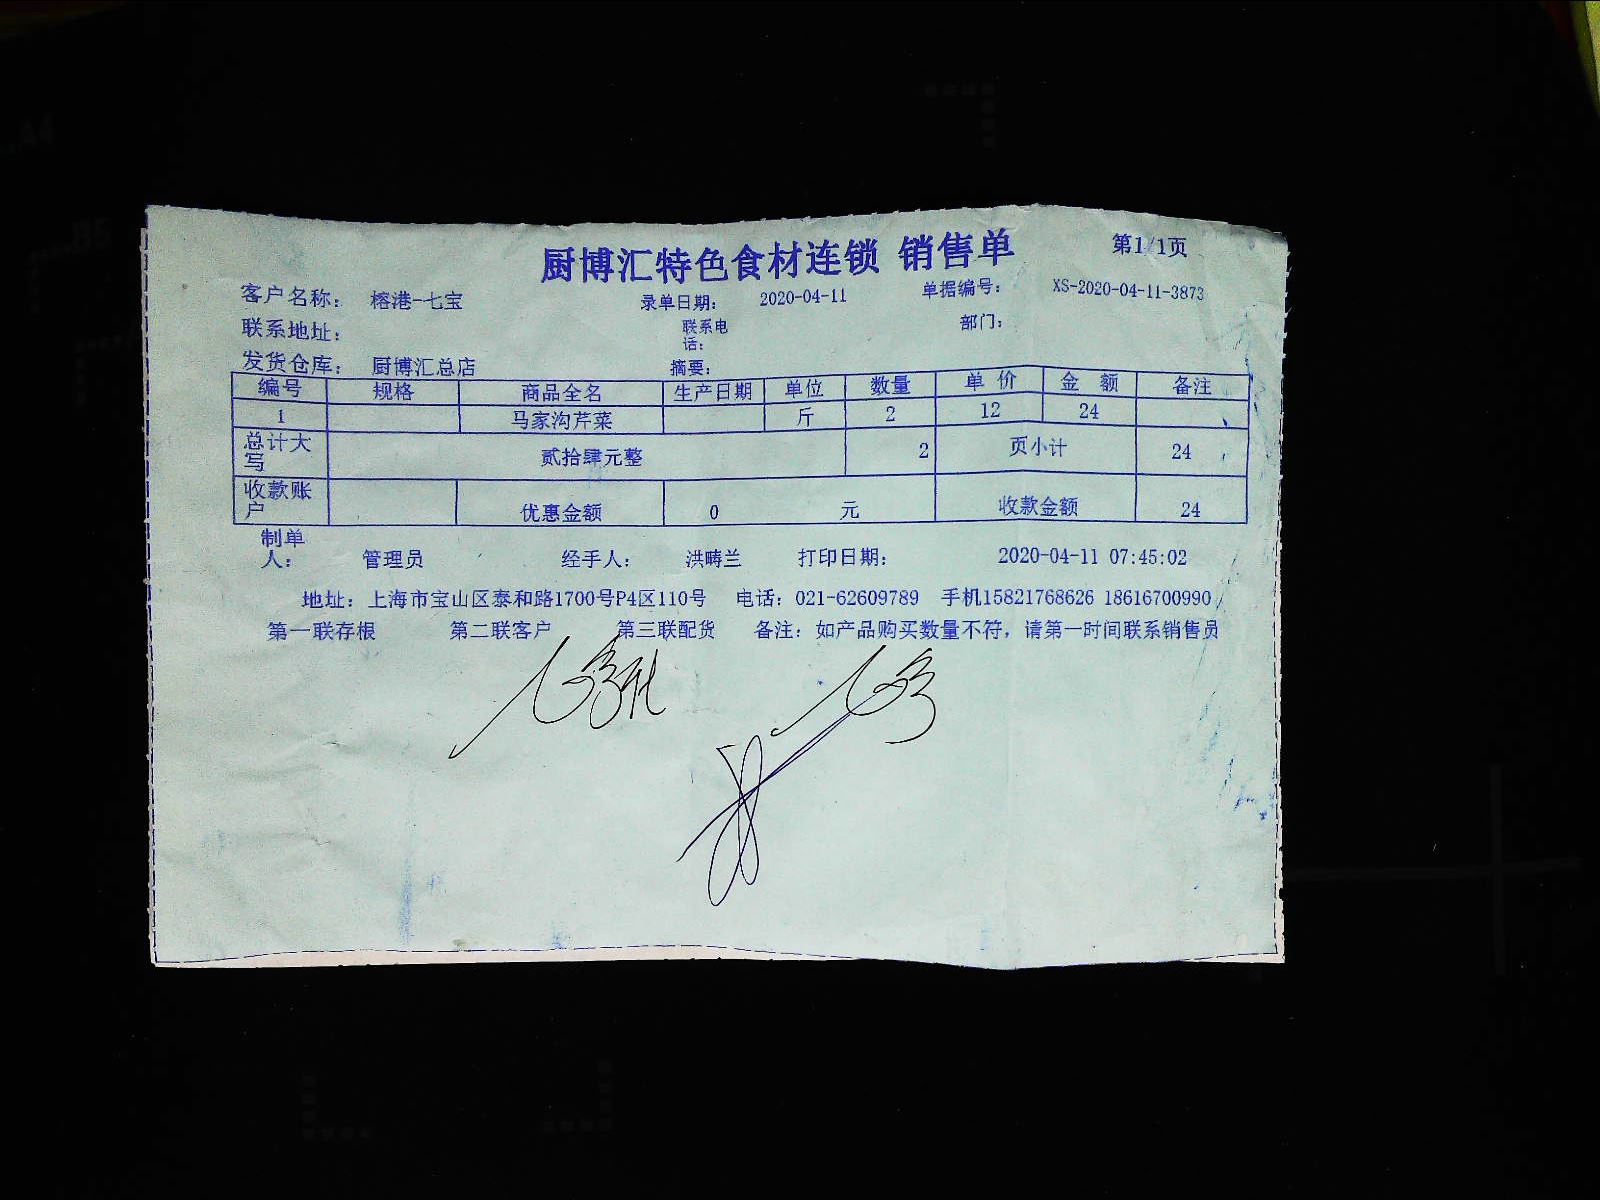 厨博汇特色食材连锁 销售单 第1/1页
客户名称： 榕港-七宝 录单日期： 2020-04-11 单据编号： XS-2020-04-11-3873
联系地址： 联系电话： 部门：
发货仓库： 厨博汇总店 摘要：
编号 规格 商品全名 生产日期 单位 数量 单 价 金 额 备注
1 马家沟芹菜 斤 2 12 24
总计大写 贰拾肆元整 2 页小计 24
收款账户 优惠金额 0 元 收款金额 24
制单人： 管理员 经手人： 洪畴兰 打印日期： 2020-04-11 07:45:02
地址：上海市宝山区泰和路1700号P4区110号 电话：021-62609789 手机15821768626 18616700990
第一联存根 第二联客户 第三联配货 备注：如产品购买数量不符，请第一时间联系销售员